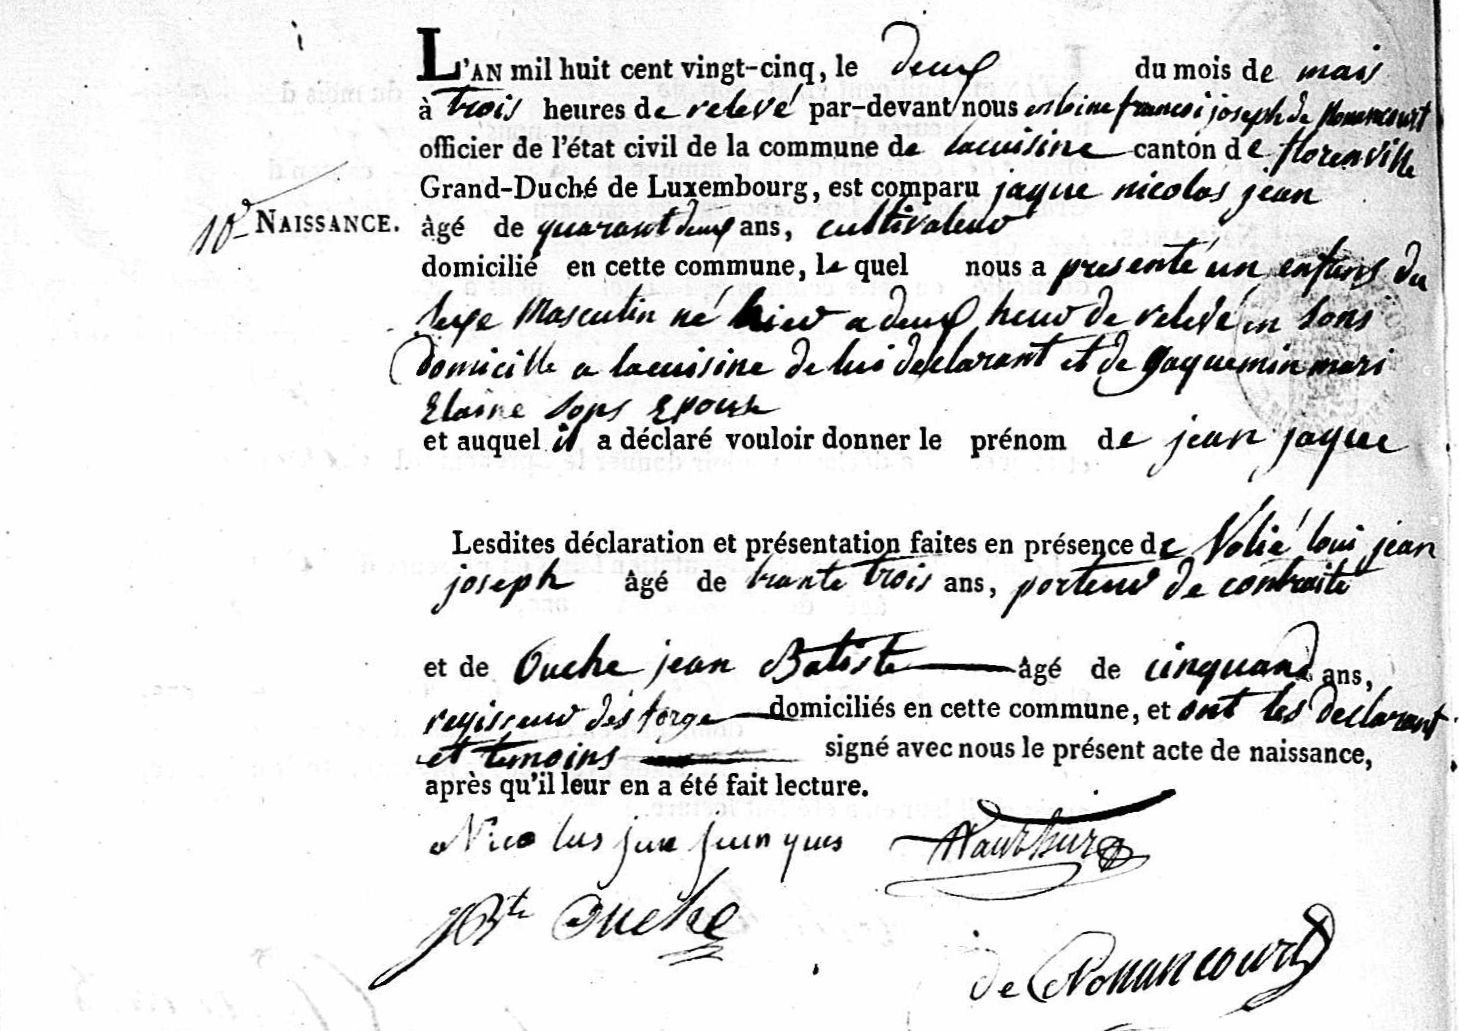 L'AN mil huit cent vingt-cinq, le deux du mois de mais
à trois heures de relevé par-devant nous francoi joseph de Nonancourt
officier de l'état civil de la commune de lacuisine canton de florenville
Grand-Duché de Luxembourg, est comparu jaque nicolas jean
10e NAISSANCE.
âgé de quarant deux ans, cultivateur
domicilié en cette commune, le quel nous a presenté un enfans du
sexe Masculin né hier a deux heur de relevé en sons
domicille a lacuisine de lui declarant et de Jaquemin mari
Elaine sons Epouse
et auquel il a déclaré vouloir donner le prénom de jean jaque
Lesdites déclaration et présentation faites en présence de loui jean
joseph âgé de trante trois ans, porteur de contrainte
et de Ouche jean Batiste âgé de cinquand ans,
regisseur des forge domiciliés en cette commune, et ont les declarant
et temoins signé avec nous le présent acte de naissance,
après qu'il leur en a été fait lecture.
Nicolas jean jacques
JBte Ouche
de Nonancourt